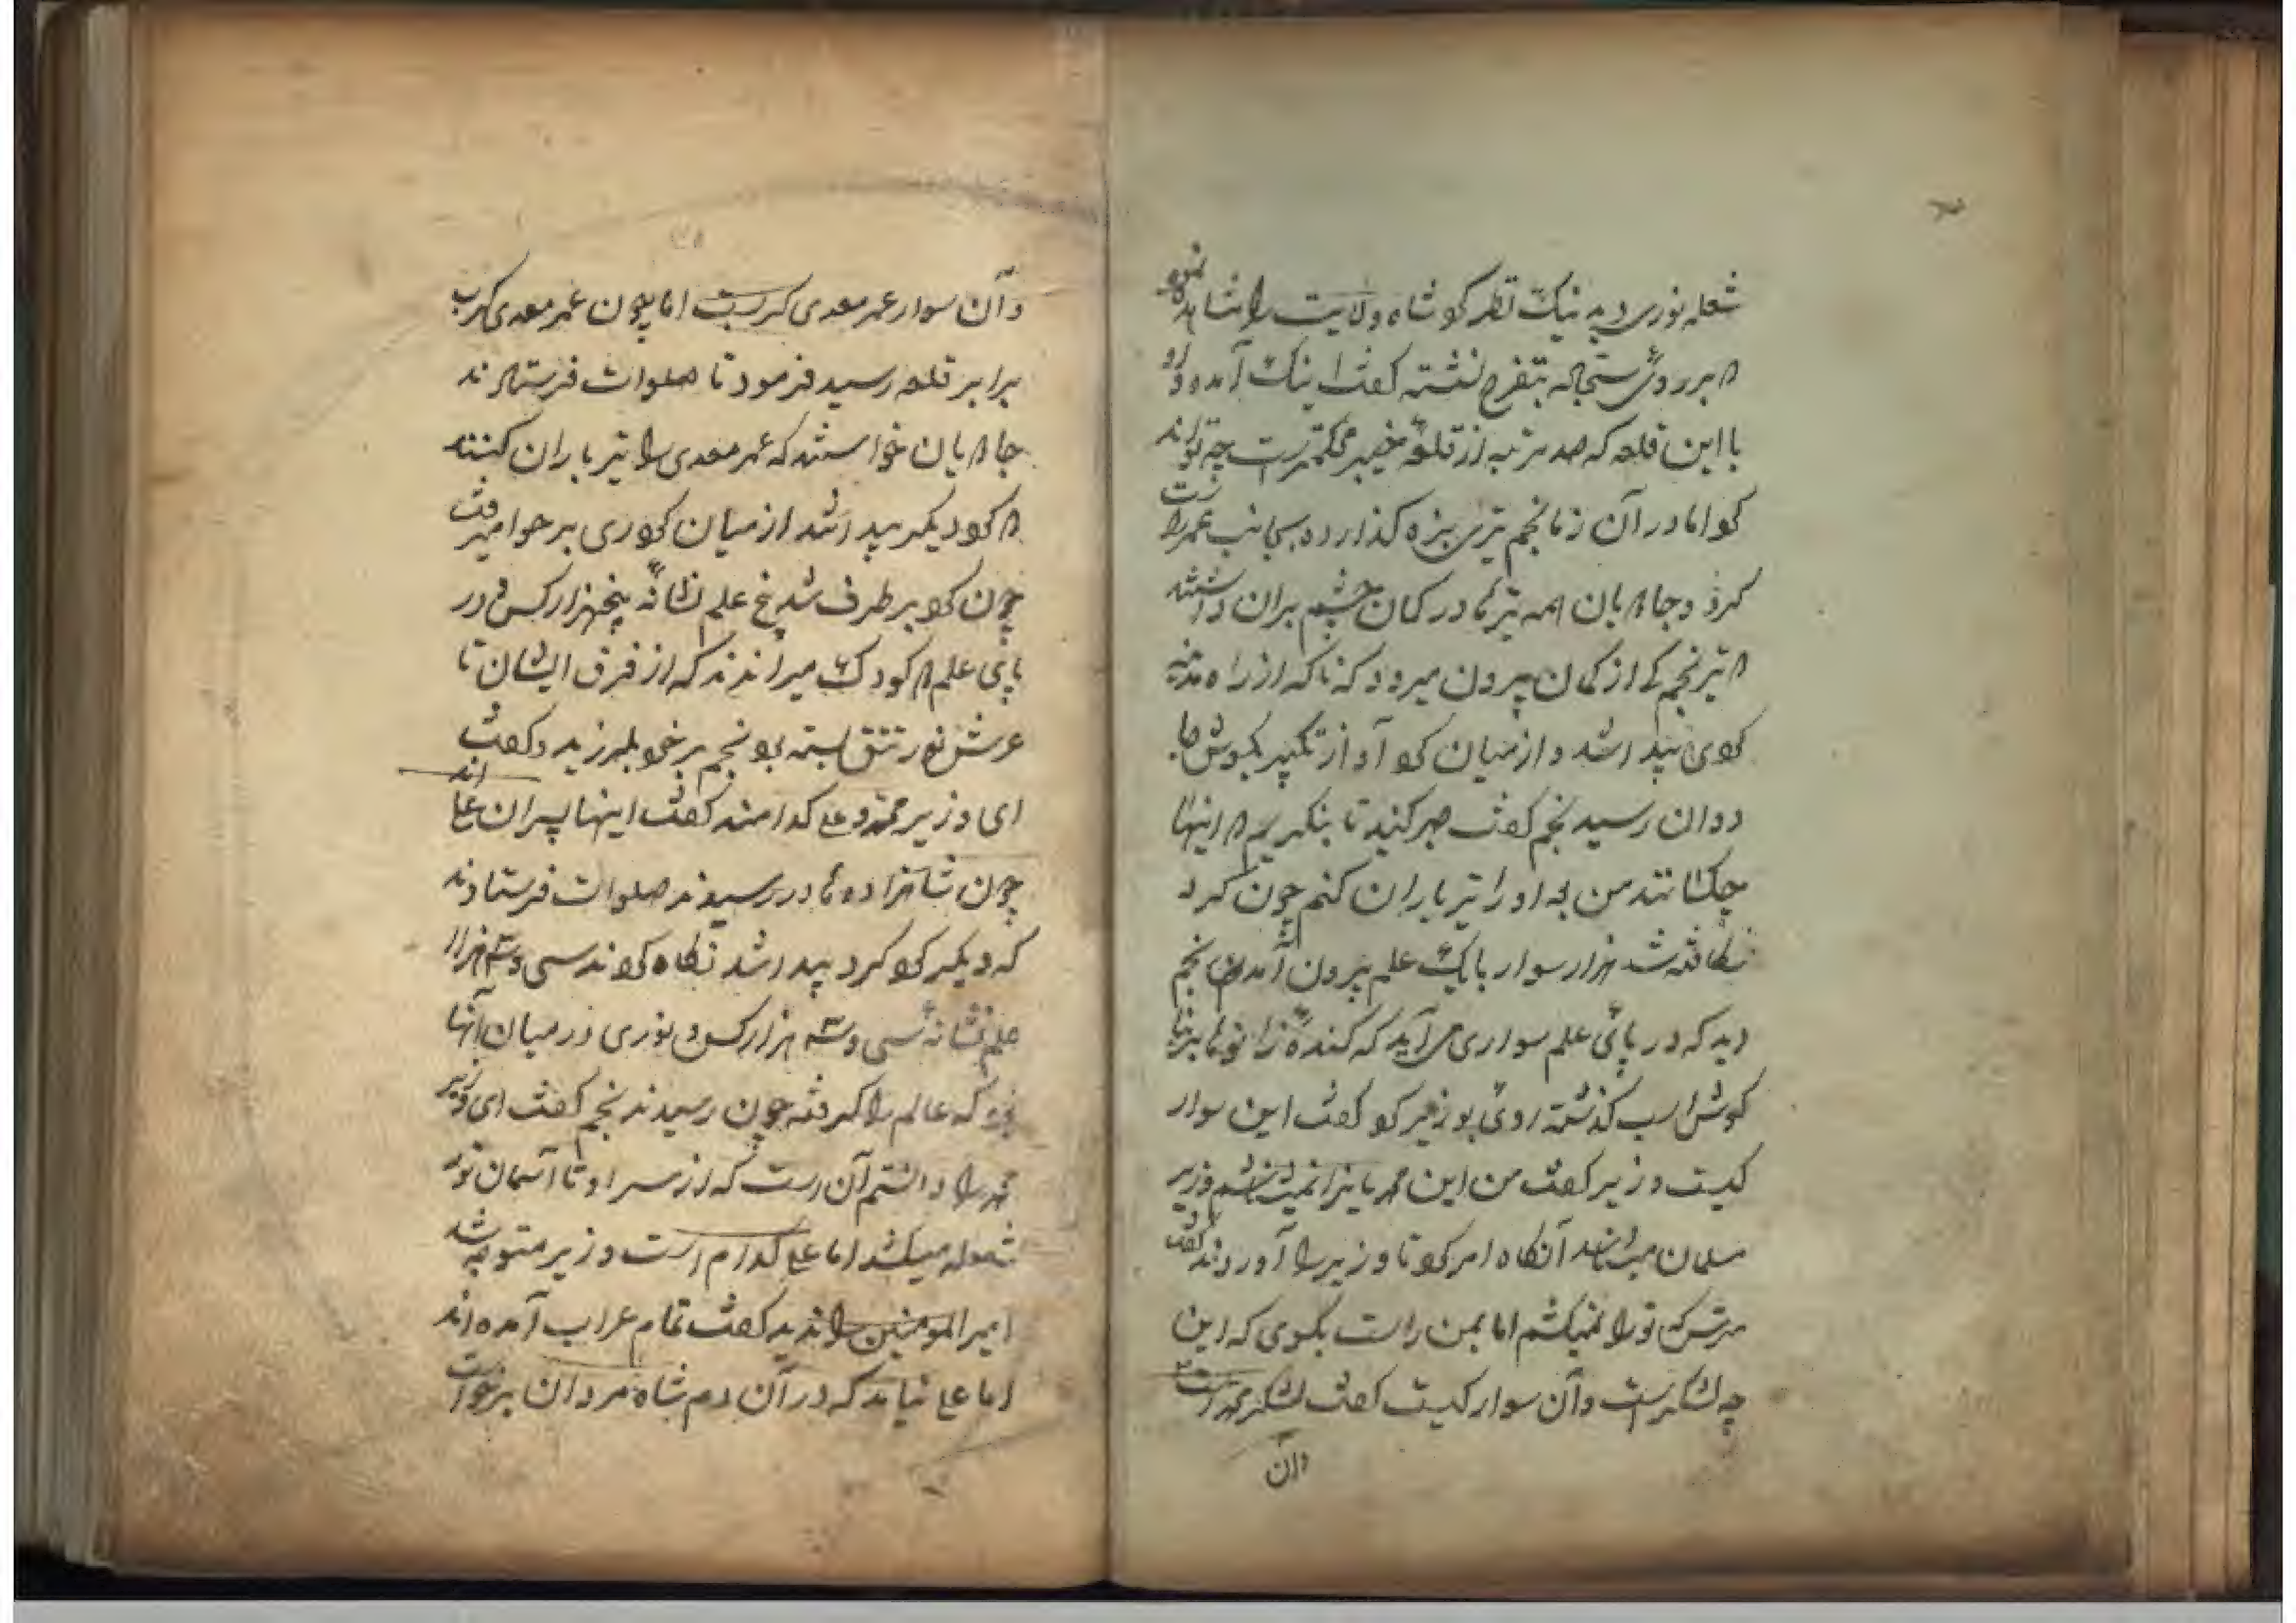 شعله نوری دید نیک نظر کرد شاه ولایت را مشاهده نمود
که بر روی سنجاله بتفرج نشسته گفت اینک آمده
با این قلعه که صد مرتبه از قلعه خیبر محکمتر است چه تواند
کرد اما در آن زمان نجم تیری بزه گذارده بجانب عمر راست
کرد و جاهیان همه تیرها در کمان چشم بران داشتند
که تیر نجم کی از کمان بیرون میرود که ناگه از راه مدینه
گردی پیدا شد و از میان گرد آواز تکبیر بگوش
دوان رسید نجم گفت صبر کنید تا بنگریم که اینها
چکسانند من بعد او را تیر باران کنم چون گرد
شکافته شد هزار سوار با یک علم بیرون آمدند نجم
دید که در پای علم سواری می آید که کنده زانوها
گوش اسب گذشته روی بوزیر کرد گفت این سوار
کیست وزیر گفت من این محمدیانرا نمیشناسم وزیر
مسلمان میباشد آنگاه امر کرد تا وزیر را آوردند گفت
مترس که تو را نمیکشم اما بمن راست بگوی که این
چه لشکریست و آن سوار کیست گفت لشکر محمد است
وآن
وآن سوار عمر معدی کرب است اما چون عمر معدی کرب
برابر قلعه رسید فرمود تا صلوات فرستادند
جاهیان خواستند که عمر معدی را تیر باران کنند
که گرد دیگر پیدا شد از میان گرد نوری بر هوا میرفت
چون گرد بر طرف شد پنج علم نشانه پنجهزار کس و در
پای علم دو کودک میراندند که از فرق ایشان تا
عرش نور تتق بسته بود نجم بر خود بلرزید و گفت
ای وزیر محمد و علی کدامند گفت اینها پسران علی اند
چون شاهزاده ها در رسیدند صلوات فرستادند
که دیگر گرد پیدا شد نگاه کردند سی و سه هزار
علم نشانه سی و سه هزار کس و نوری در میان آنها
بود که عالم را گرفته چون رسیدند نجم گفت ای وزیر
محمد را دانستم آن است که از سر او تا آسمان نور
شعله میکشد اما علی کدام است وزیر متوجه شد
امیرالمومنین را ندید گفت تمام عراب آمده اند
اما علی نیامد که در آن دم شاه مردان برخواست